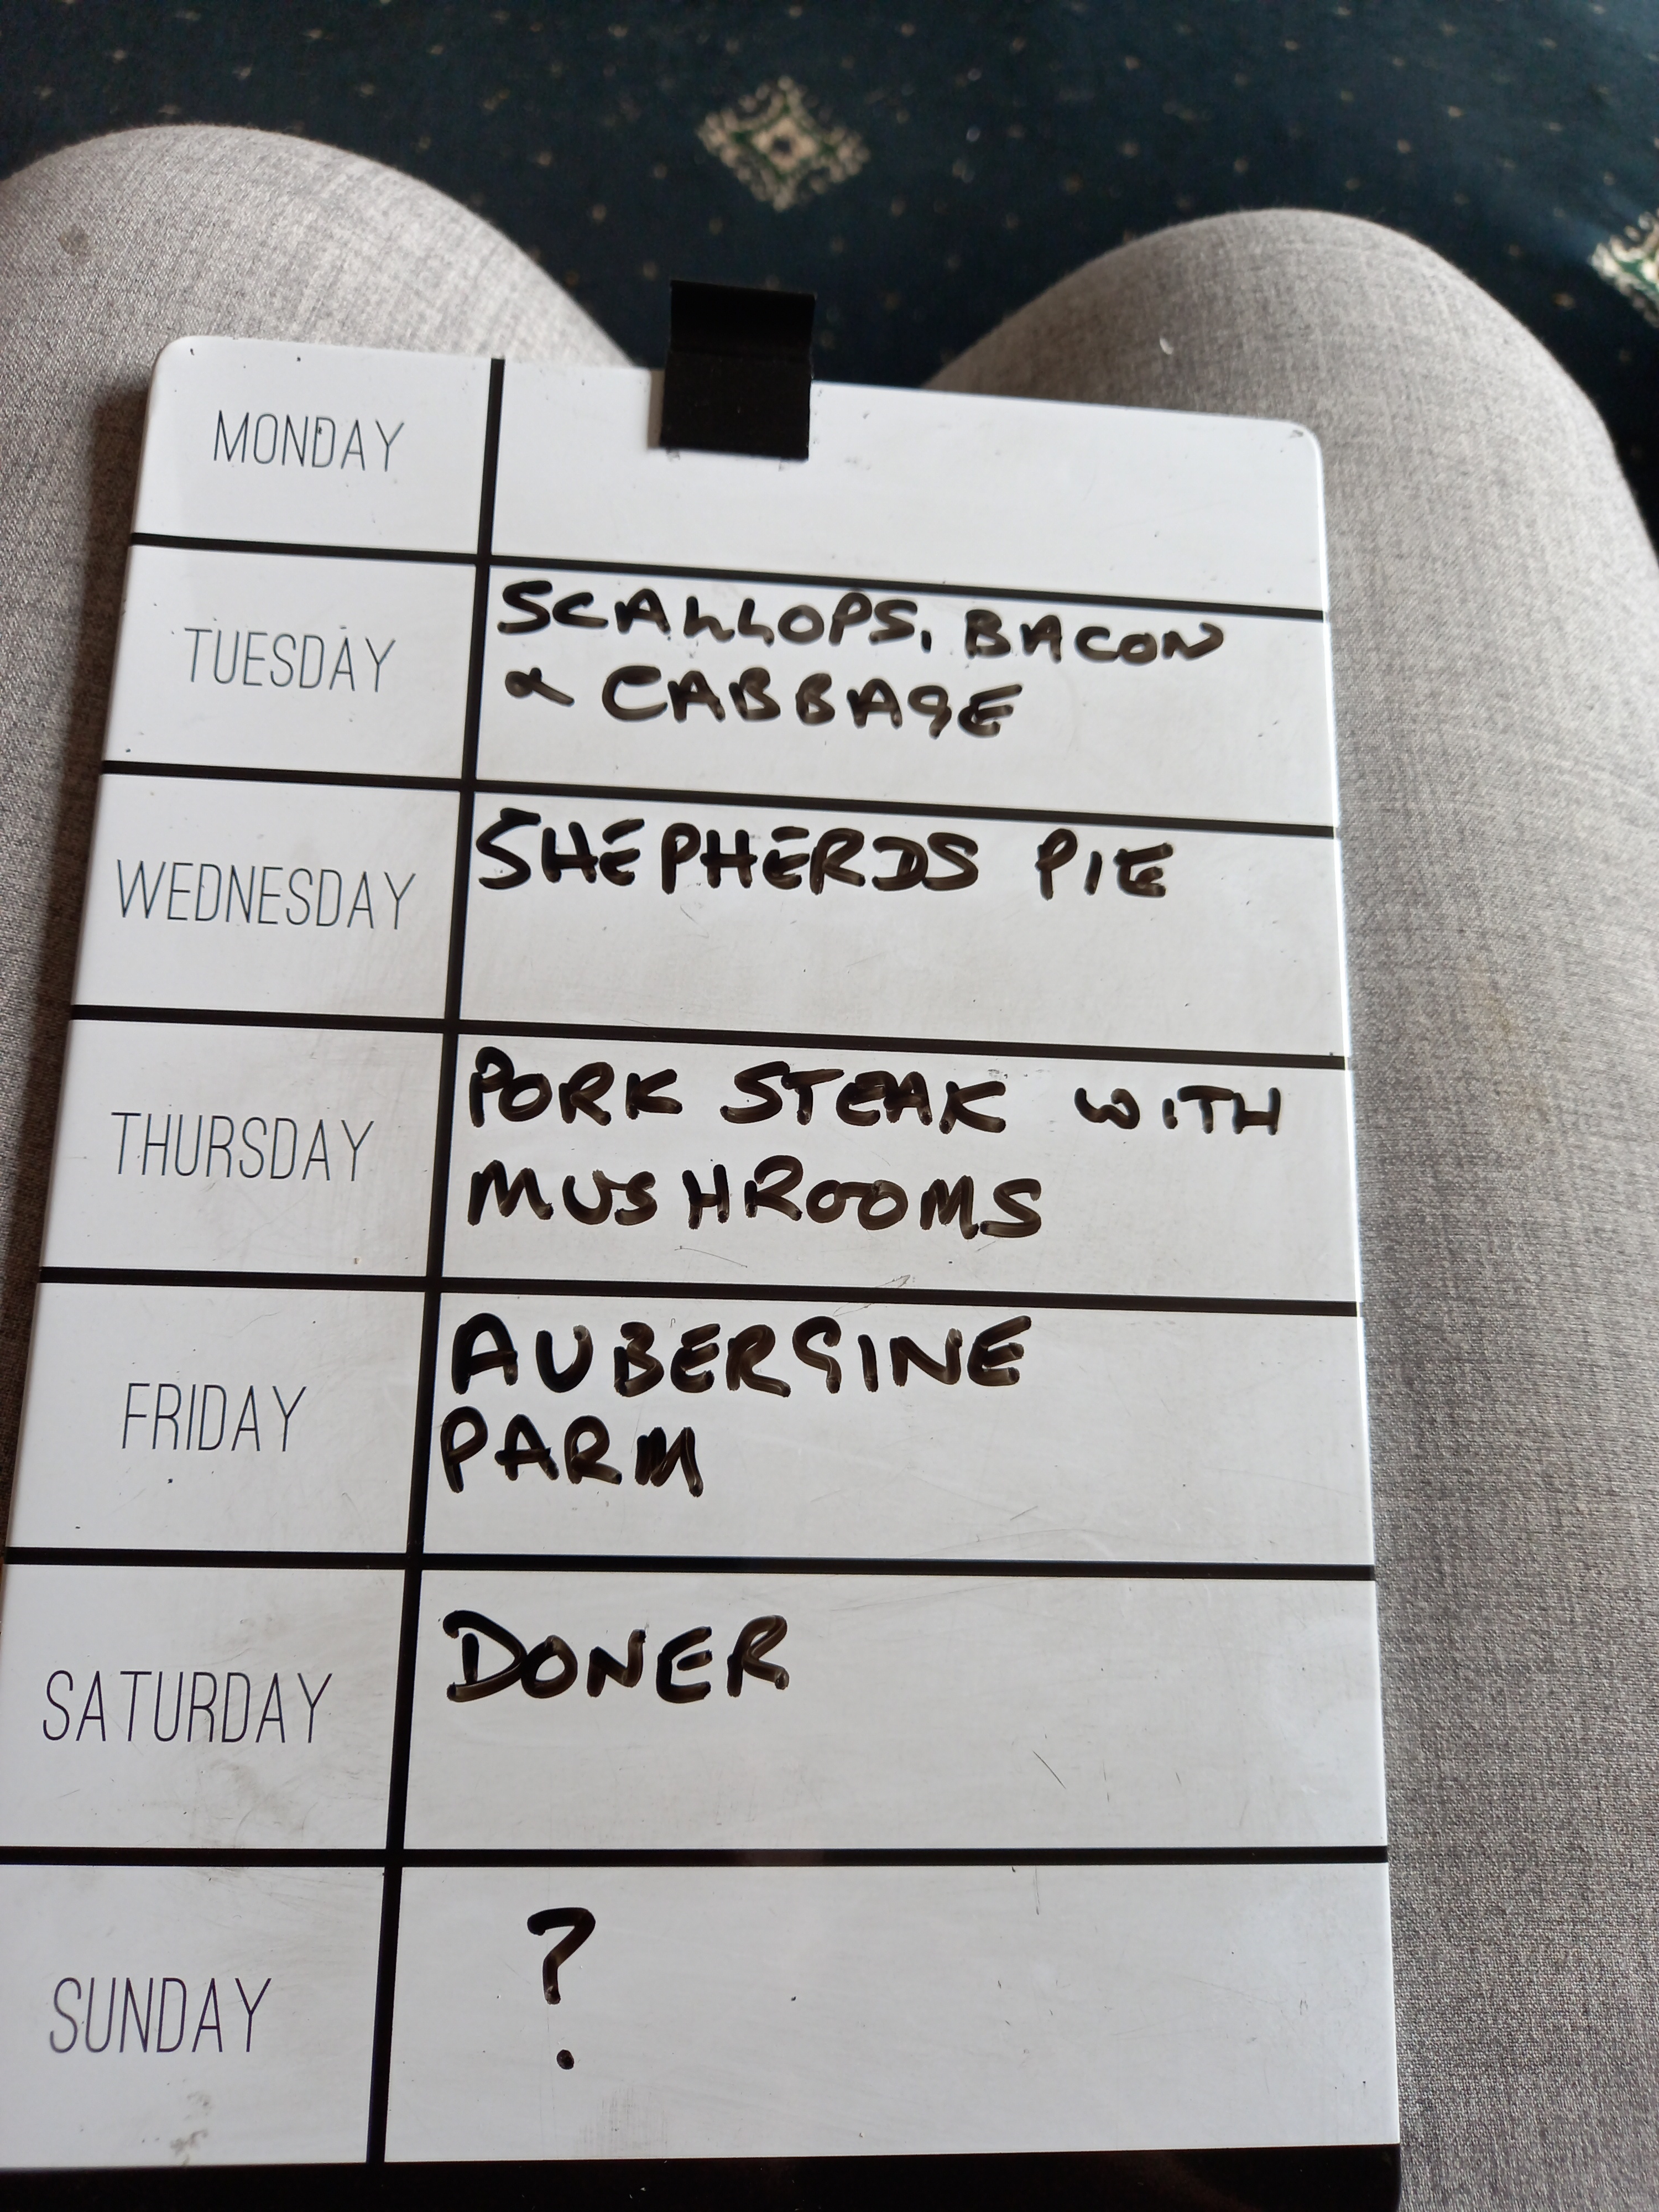 MONDAY
TUESDAY
SCALLOPS, BACON
& CABBAGE
WEDNESDAY
SHEPHERDS PIE
THURSDAY
PORK STEAK WITH
MUSHROOMS
FRIDAY
AUBERGINE
PARM
SATURDAY
DONER
SUNDAY
?